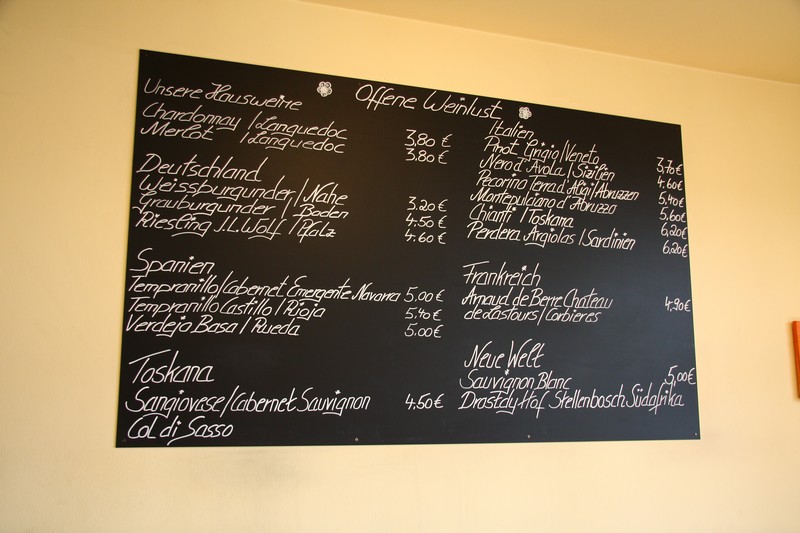 Offene Weinlust
Unsere Hausweine
Chardonnay / Languedoc 3,80 €
Merlot / Languedoc 3,80 €
Deutschland
Weissburgunder / Nahe 3.20 €
Grauburgunder / Baden 4.50 €
Riesling J.L.Wolf / Pfalz 4.60 €
Spanien
Tempranillo/Cabernet Emergente Navarra 5,00 €
Tempranillo Castillo / Rioja 5.40 €
Verdejo Basa / Rueda 5.00 €
Toskana
Sangiovese/Cabernet Sauvignon 4.50 €
Col di Sasso
Italien
Pinot Grigio/Veneto 3,70 €
Nero d'Avola / Sizilien 4.60 €
Pecorino Terra d'Aligi/Abruzzen 5,40 €
Montepulciano d'Abruzzo 5,60 €
Chianti / Toskana 6,20 €
Perdera Argiolas / Sardinien 6,20 €
Frankreich
Arnaud de Berre Chateau 4,90 €
de Lastours / Corbieres
Neue Welt
Sauvignon Blanc 5,00 €
Drostdy Hof Stellenbosch Südafrika